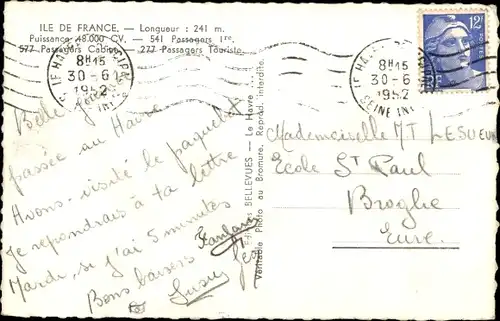 ILE DE FRANCE. — Longueur : 241 m.
Puissance 48.000 CV. — 541 Passagers 1re.
577 Passagers Cabine — 277 Passagers Touriste.
8H15
30-6
1952
LE HAVRE
8H15
30-6
1952
SEINE INF
12F
Belle journée
passée au Havre
Avons visité le paquebot
Je repondrais à ta lettre
Mardi, si j'ai 5 minutes
Bons baisers
BELLEVUES — Le Havre
Véritable Photo au Bromure. Reprod. Interdite.
Mademoiselle MT LESUEUR
Ecole St Paul
Broglie
Eure.